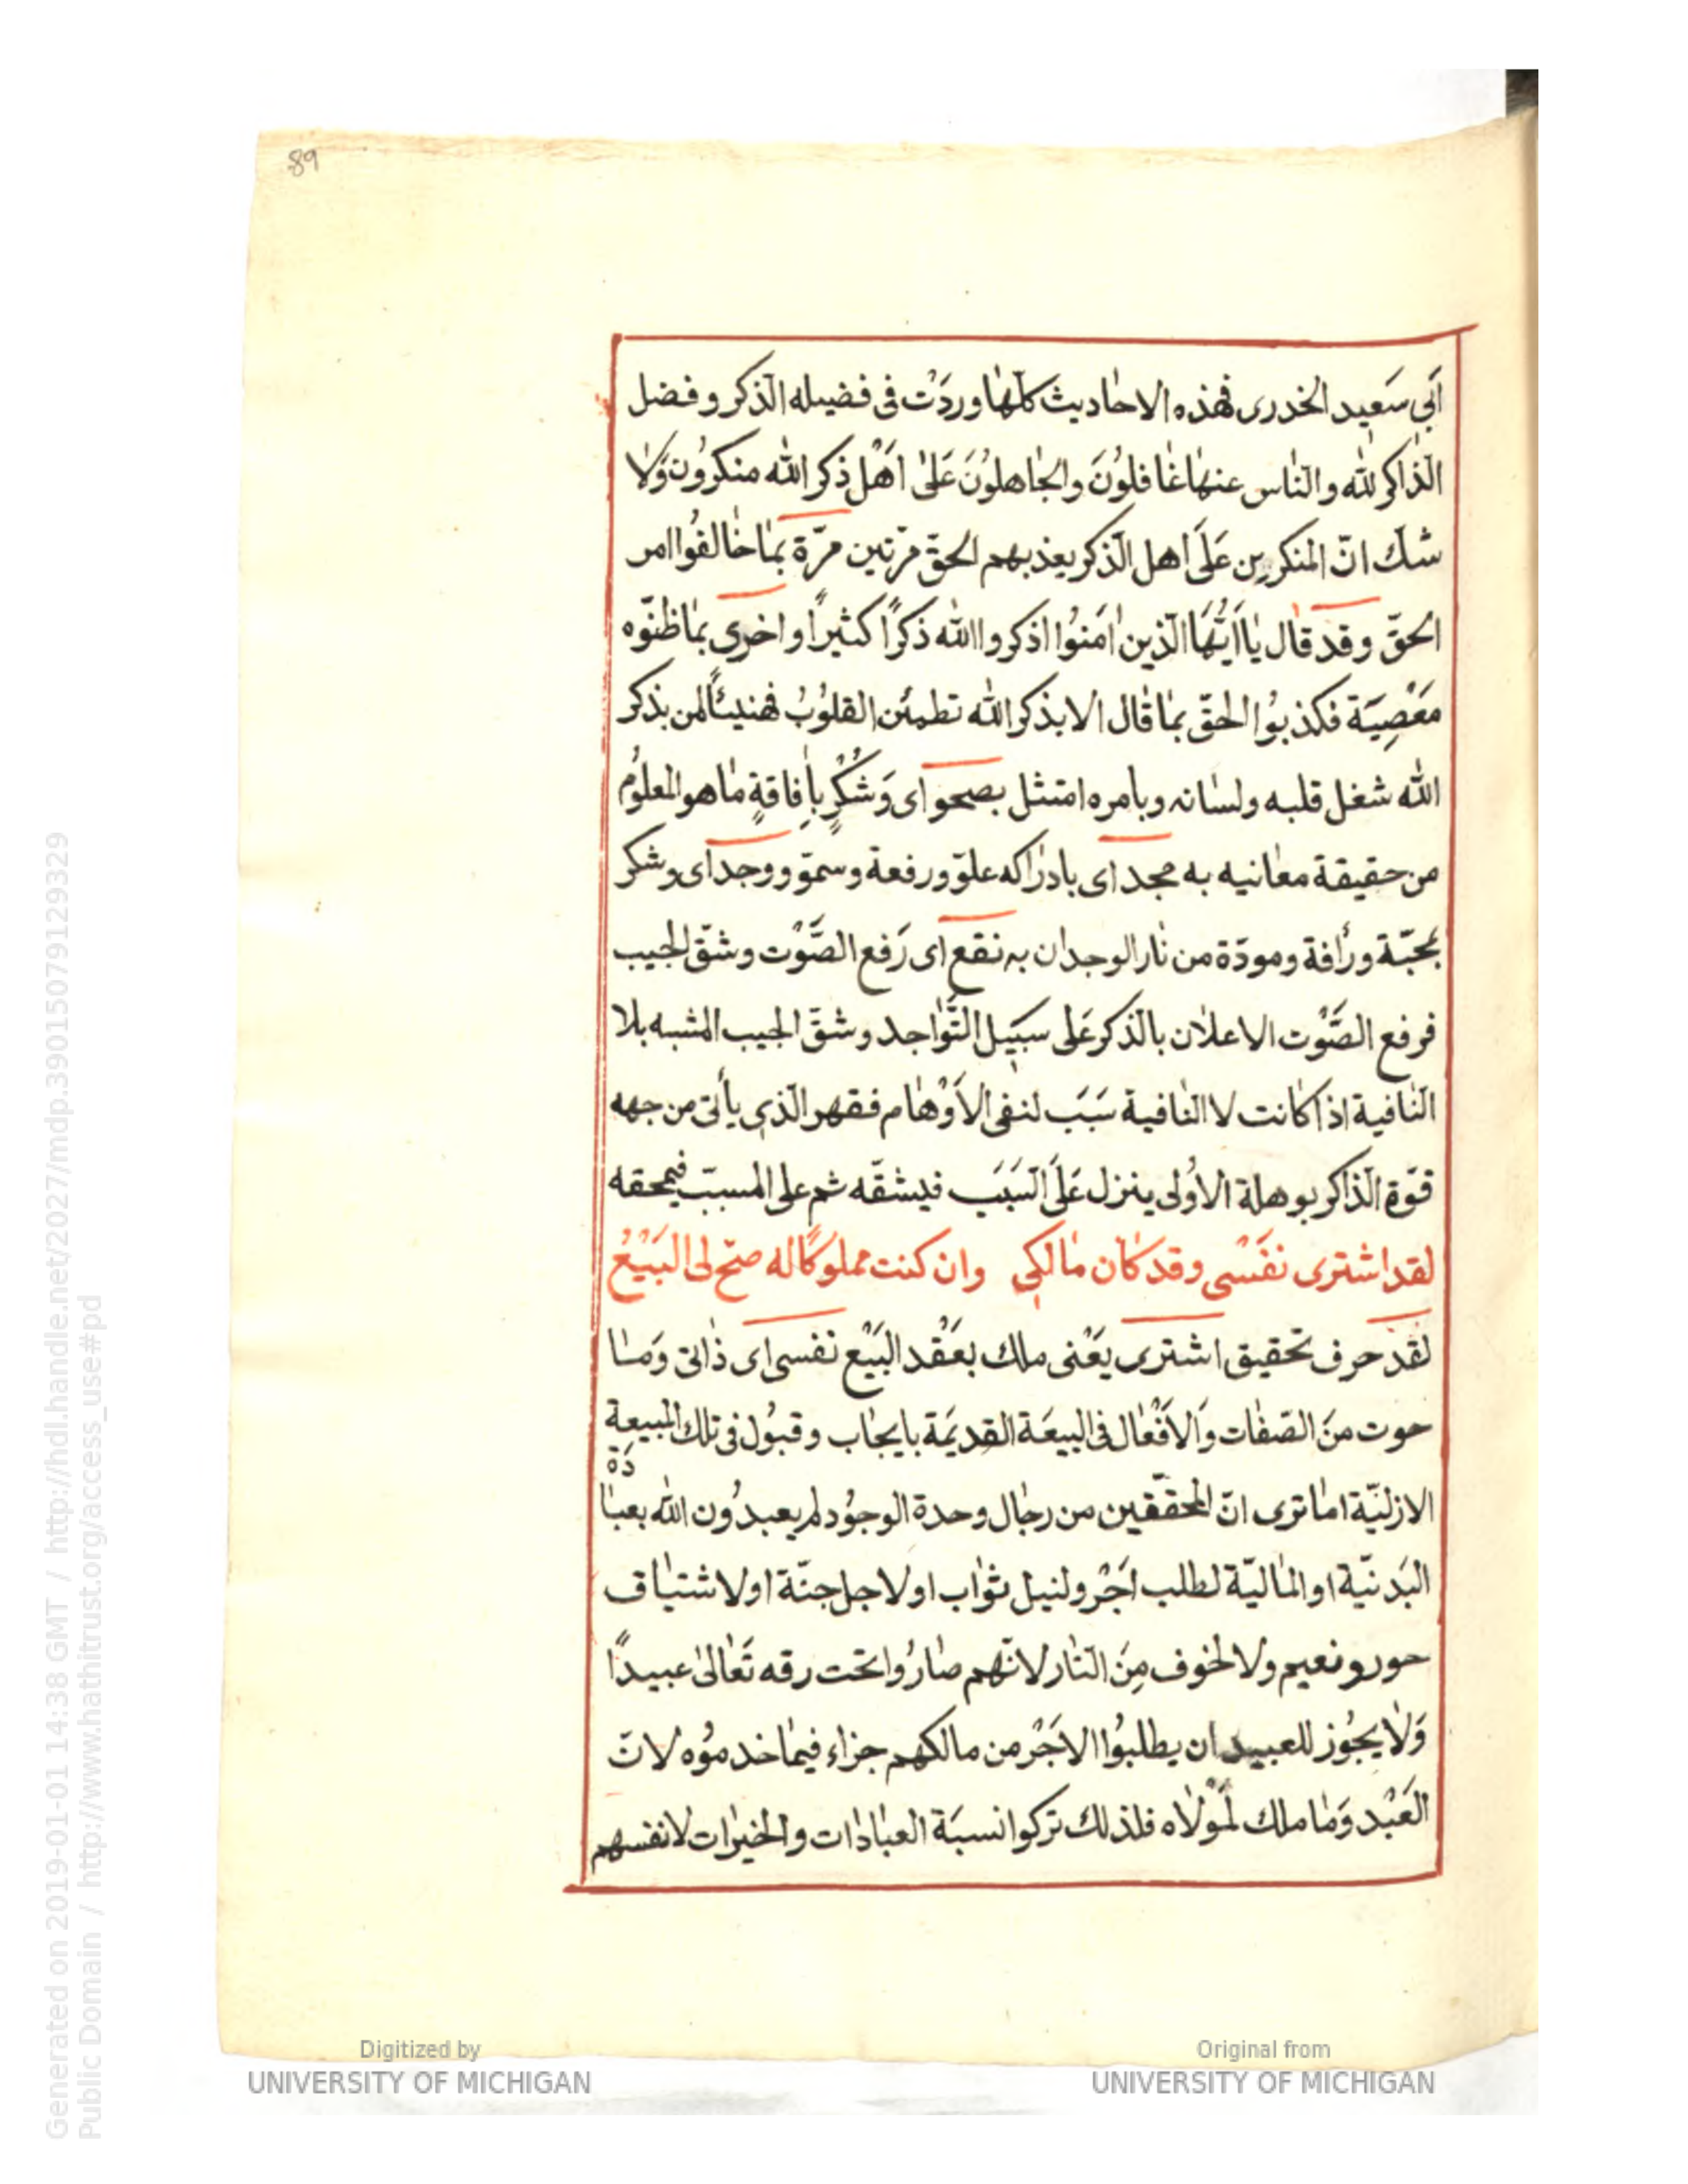 89
اَبي سَعيد الخدرى فهٰذه الاحٰاديث كلّهٰا وردَتْ فى فضيله الّذكر وفضل
الّذٰاكر لله والنّاس عنهٰا غٰافلوُنَ والجٰاهلوُنَ عَلىٰ اهَْل ذكر الله منكروُن وَلاٰ
شكّ انّ المنكرين عَلَى اهل الّذكر يعذبهم الحقّ مرّتين مرّة بمٰا خٰالفوُا امر
الحقّ وقد قال يٰا اَيّهَُا الّذين اٰمَنوُا اذكروا الله ذكرًا كثيرًا واخرى بمٰا ظنّوه
مَعْصِيَة فكذبوُا الحقّ بمٰا قٰال الا بذكر الله تطمئن القلوُبُ فهنيئًا لمن بذكر
الله شغل قلبه ولسٰانه وبامره امتثل بصحو اى وَشُكْرٍ بأِفاقةٍ مٰا هو المعلوُم
من حقيقة معٰانيه به مجد اى بادرٰاكه علوّ ورفعة وسموّ ووجد اى وشكر
بمحبّة ورأفة ومودّة من نٰار الوجدٰان به نقع اى رَفع الصَّوْت وشقّ الجيب
فرفع الصَّوْت الاعلاٰن بالّذكر عَلى سبَيل التَّوٰاجد وشقّ الجيب المشبه بلا
النّٰافية اذا كٰانت لا النٰافية سَبَب لنفى الاَوْهٰام فقهر الّذي يأتى من جهه
قوّة الّذاكر بوهلة الاُولى ينزل عَلَى السَبَب فيشقّه ثم على المسبّب فيمحقه
لقد اشترى نفَسْى وقد كٰان مٰالكي وان كنت مملوكًا له صحّ لى البَيْعُ
لقَد حرف تحقيق اشترى يعَْنى ملك بعَقْد البَيْع نَفسى اى ذٰاتى وَمٰا
حوت منَ الصّفٰات وَالاَفْعٰال فى البيعَة القديمَة بايجٰاب وقبوُل فى تلك المبيعة
الازليّة امٰا ترى انّ المحقّقين من رجٰال وحدة الوجوُد لم يعبدوُن الله بعبٰا
دَة
البَدنيّة او المٰاليّة لطلب اَجْر ولنيل ثوٰاب او لاجل جنّة او لاشتيٰاق
حور ونعيم ولا لخوف مِنَ النّٰار لانّهم صٰاروُا تحت رقه تَعٰالىٰ عبيدًا
وَلاٰ يجوُز للعبيد ان يطلبوُا الاَجْر من مالكهم جزاء فيمٰا خدموُه لانّ
العَبْد وَمٰا ملك لمَوْلاٰه فلذلك تركوا نسبَة العبٰادٰات والخيرٰات لانفسهم
Generated on 2019-01-01 14:38 GMT / http://hdl.handle.net/2027/mdp.39015079129329
Public Domain / http://www.hathitrust.org/access_use#pd
Digitized by
UNIVERSITY OF MICHIGAN
Original from
UNIVERSITY OF MICHIGAN